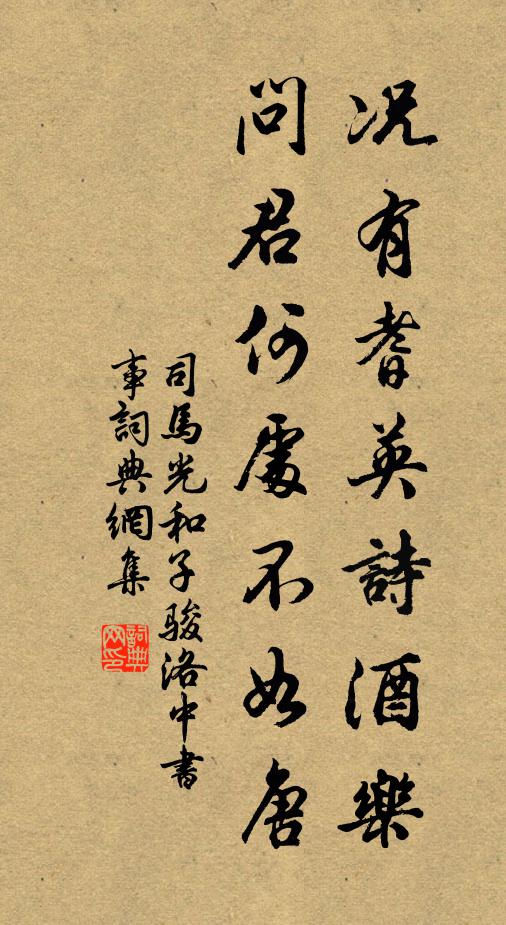 况有耆英詩酒樂
問君何處不如唐
司馬光和子駿洛中書
事詞典網集
詞典
网印